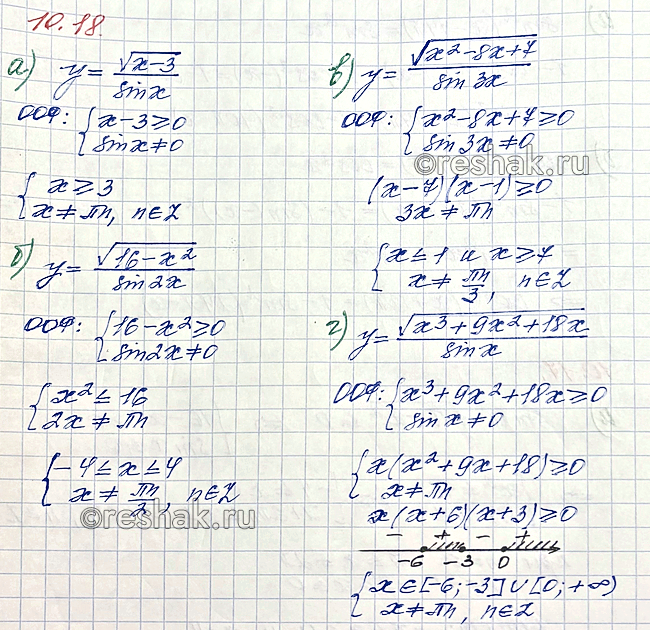 10.18.
а) y = √(x-3) / sinx
ООФ: { x-3≥0
sinx≠0
{ x≥3
x≠πn, n∈Z
б) y = √(16-x²) / sin2x
ООФ: { 16-x²≥0
sin2x≠0
{ x²≤16
2x≠πn
{ -4≤x≤4
x≠ πn/2, n∈Z
в) y = √(x²-8x+7) / sin3x
ООФ: { x²-8x+7≥0
sin3x≠0
©reshak.ru
(x-7)(x-1)≥0
3x≠πn
{ x≤1 и x≥7
x≠ πn/3, n∈Z
г) y = √(x³+9x²+18x) / sinx
ООФ: { x³+9x²+18x≥0
sinx≠0
{ x(x²+9x+18)≥0
x≠πn
x(x+6)(x+3)≥0
©reshak.ru
- + - +
-6 -3 0
{ x∈[-6;-3]∪[0;+∞)
x≠πn, n∈Z